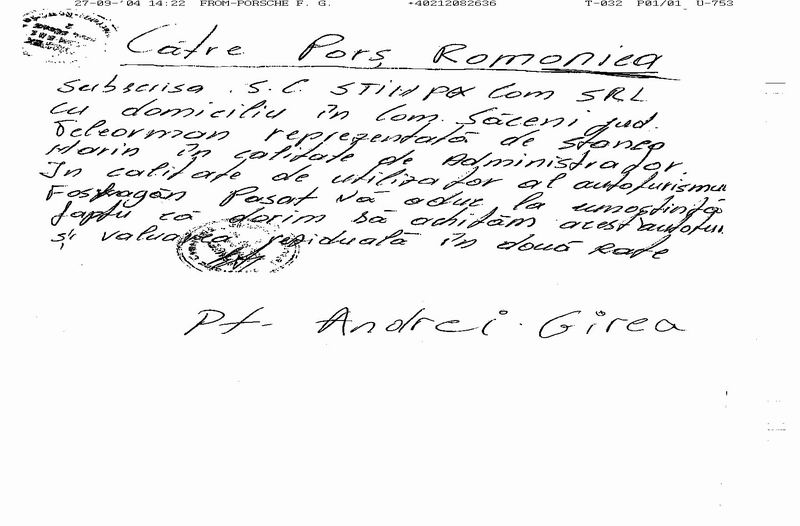 27-09-'04 14:22 FROM-PORSCHE F. G. +40212082636 T-032 P01/01 U-753
Către Porș Romoniea
Subscrisa S.C. STIMPEX Com SRL
cu domiciliu în Com. Săceni jud.
Teleorman reprezentată de Stancu
Marin în calitate de Administrador
In calitate de utilizator al autoturismu
Fosvagăn Pasat vă aduc la cunoștință
faptu că dorim să achităm acest autotur
și valuarea reziduală în două Rate
Pt- Andrei Girea